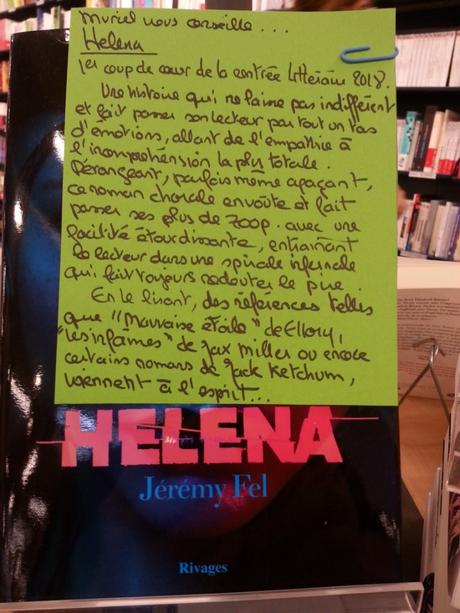 Muriel nous conseille...
Helena
1er coup de cœur de la rentrée littéraire 2018.
Une histoire qui ne laisse pas indifférent
et fait passer son lecteur par tout un tas
d'émotions, allant de l'empathie à
l'incompréhension la plus totale.
Dérangeant, parfois même agaçant,
ce roman chorale envoûte et fait
passer ses plus de 700p. avec une
facilité étourdissante, entraînant
le lecteur dans une spirale infernale
qui fait toujours redouter le pire.
En le lisant, des références telles
que "Mauvaise étoile" de Ellory,
"les infâmes" de Jax Miller ou encore
certains romans de Jack Ketchum,
viennent à l'esprit...
HELENA
Jérémy Fel
Rivages